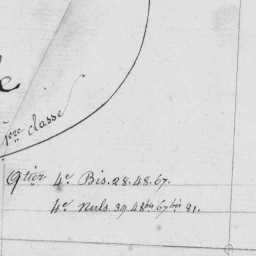 1ère classe
9tier 4e. Bis. 28. 48. 67.
4e nuls. 39 48bis 67bis 91.